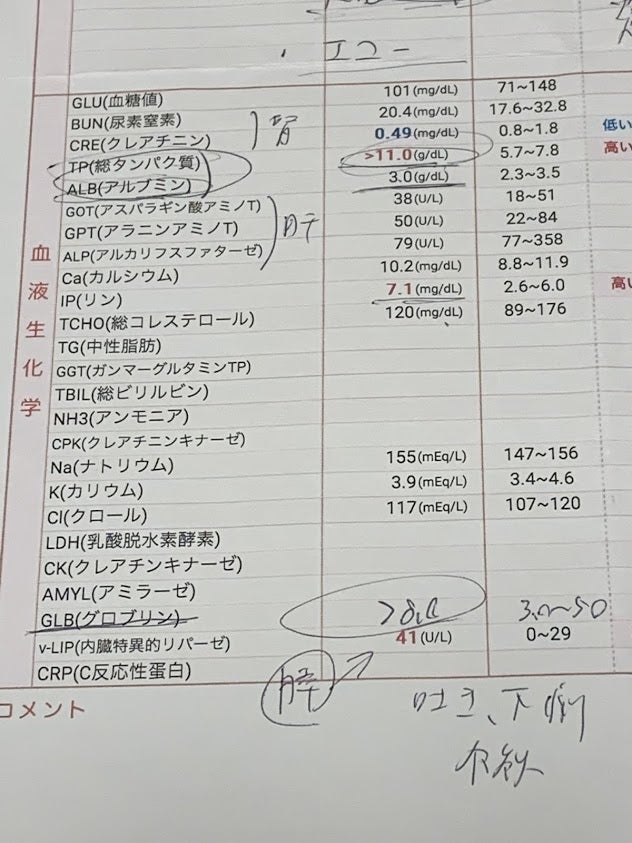 ・エコー
GLU(血糖値) 101(mg/dL) 71~148
BUN(尿素窒素) 20.4(mg/dL) 17.6~32.8
腎
CRE(クレアチニン) 0.49(mg/dL) 0.8~1.8 低い
TP(総タンパク質) >11.0(g/dL) 5.7~7.8 高い
ALB(アルブミン) 3.0(g/dL) 2.3~3.5
GOT(アスパラギン酸アミノT) 38(U/L) 18~51
GPT(アラニンアミノT) 50(U/L) 22~84
肝
ALP(アルカリフスファターゼ) 79(U/L) 77~358
Ca(カルシウム) 10.2(mg/dL) 8.8~11.9
IP(リン) 7.1(mg/dL) 2.6~6.0 高い
TCHO(総コレステロール) 120(mg/dL) 89~176
TG(中性脂肪)
GGT(ガンマーグルタミンTP)
TBIL(総ビリルビン)
NH3(アンモニア)
CPK(クレアチニンキナーゼ)
Na(ナトリウム) 155(mEq/L) 147~156
K(カリウム) 3.9(mEq/L) 3.4~4.6
Cl(クロール) 117(mEq/L) 107~120
LDH(乳酸脱水素酵素)
CK(クレアチンキナーゼ)
AMYL(アミラーゼ)
GLB(グロブリン) >8.0 3.0~5.0
v-LIP(内臓特異的リパーゼ) 41(U/L) 0~29
CRP(C反応性蛋白)
血液生化学
コメント
膵
吐き、下痢